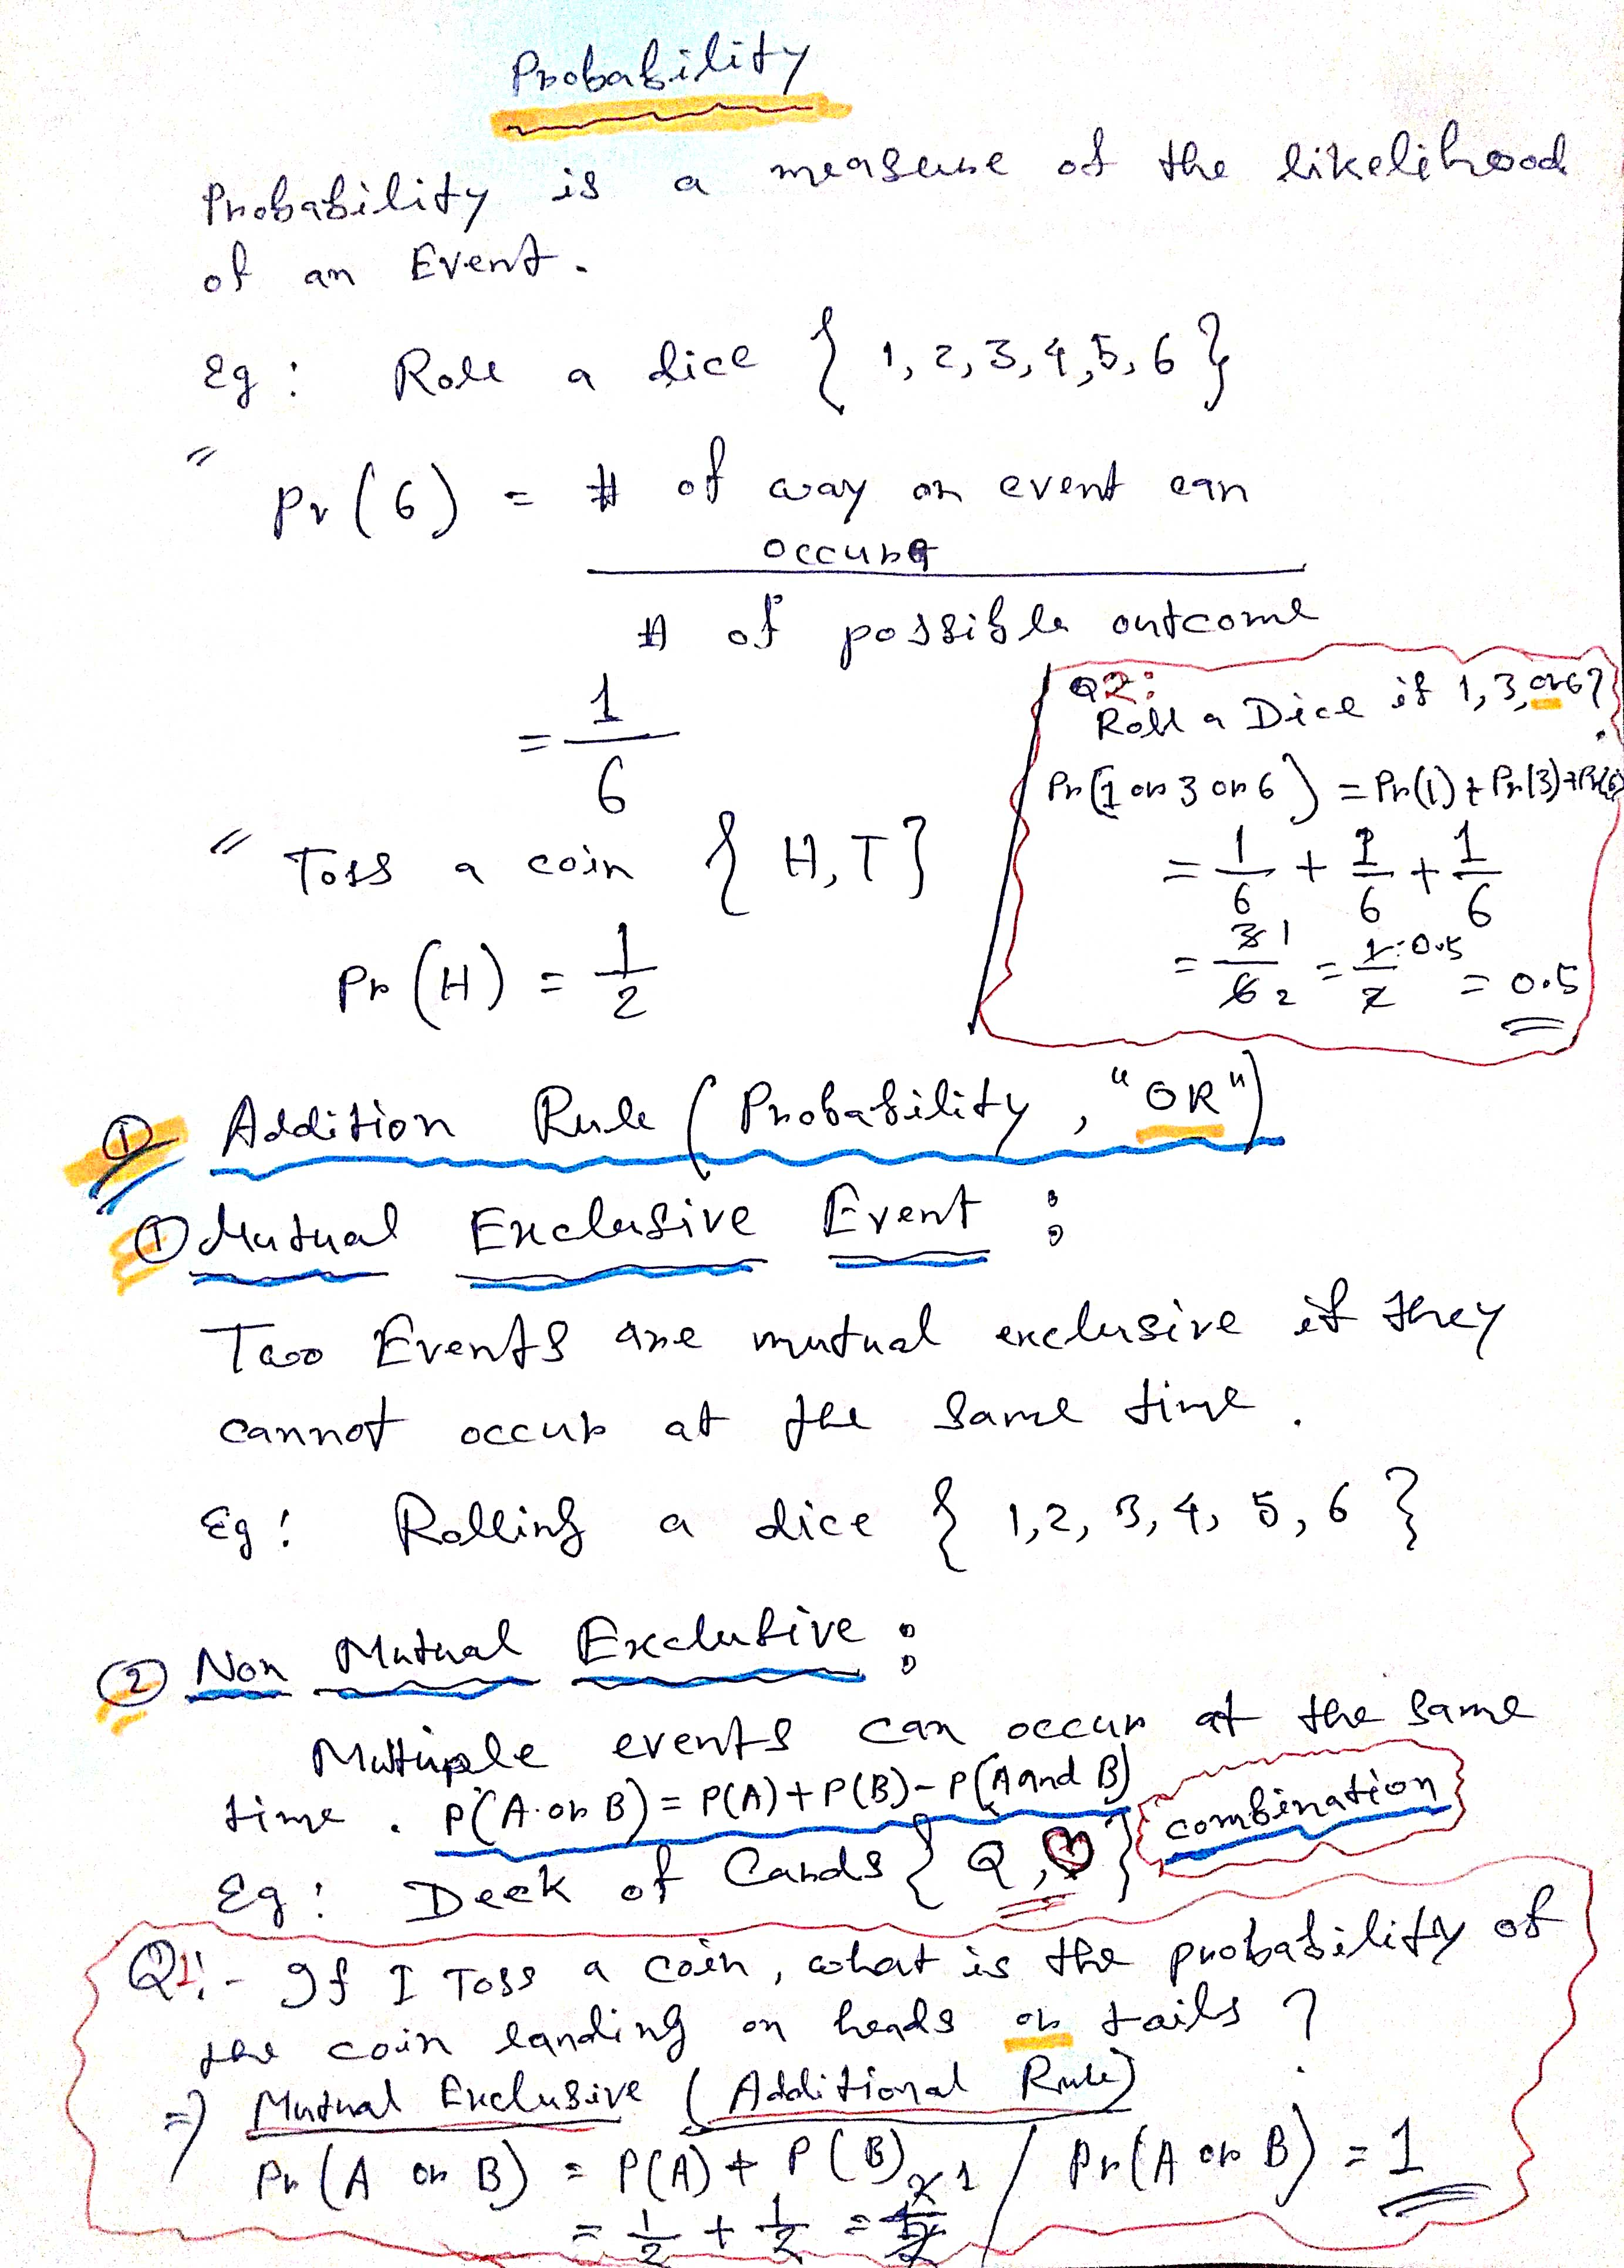 Probability
Probability is a measure of the likelihood
of an Event.
Eg : Roll a dice { 1, 2, 3, 4, 5, 6 }
" Pr (6) = # of way an event can
occur
# of possible outcome
= 1
6
" Toss a coin { H, T }
Pr (H) = 1
2
Q2:
Roll a Dice if 1, 3, or 6?
Pr (1 or 3 or 6) = Pr(1) + Pr(3) + Pr(6)
= 1/6 + 1/6 + 1/6
= 3/6 1/2 = 1/2 0.5 = 0.5
① Addition Rule ( Probability, "OR")
① Mutual Exclusive Event :
Two Events are mutual exclusive if they
cannot occur at the same time.
Eg : Rolling a dice { 1, 2, 3, 4, 5, 6 }
② Non Mutual Exclusive :
Multiple events can occur at the same
time . P(A or B) = P(A) + P(B) - P(A and B)
combination
Eg : Deck of Cards { Q, ♡ }
Q1:- If I Toss a coin, what is the probability of
the coin landing on heads or tails ?
⇒ Mutual Exclusive ( Additional Rule)
Pr (A or B) = P(A) + P(B) / Pr(A or B) = 1
= 1/2 + 1/2 = 2/2 1